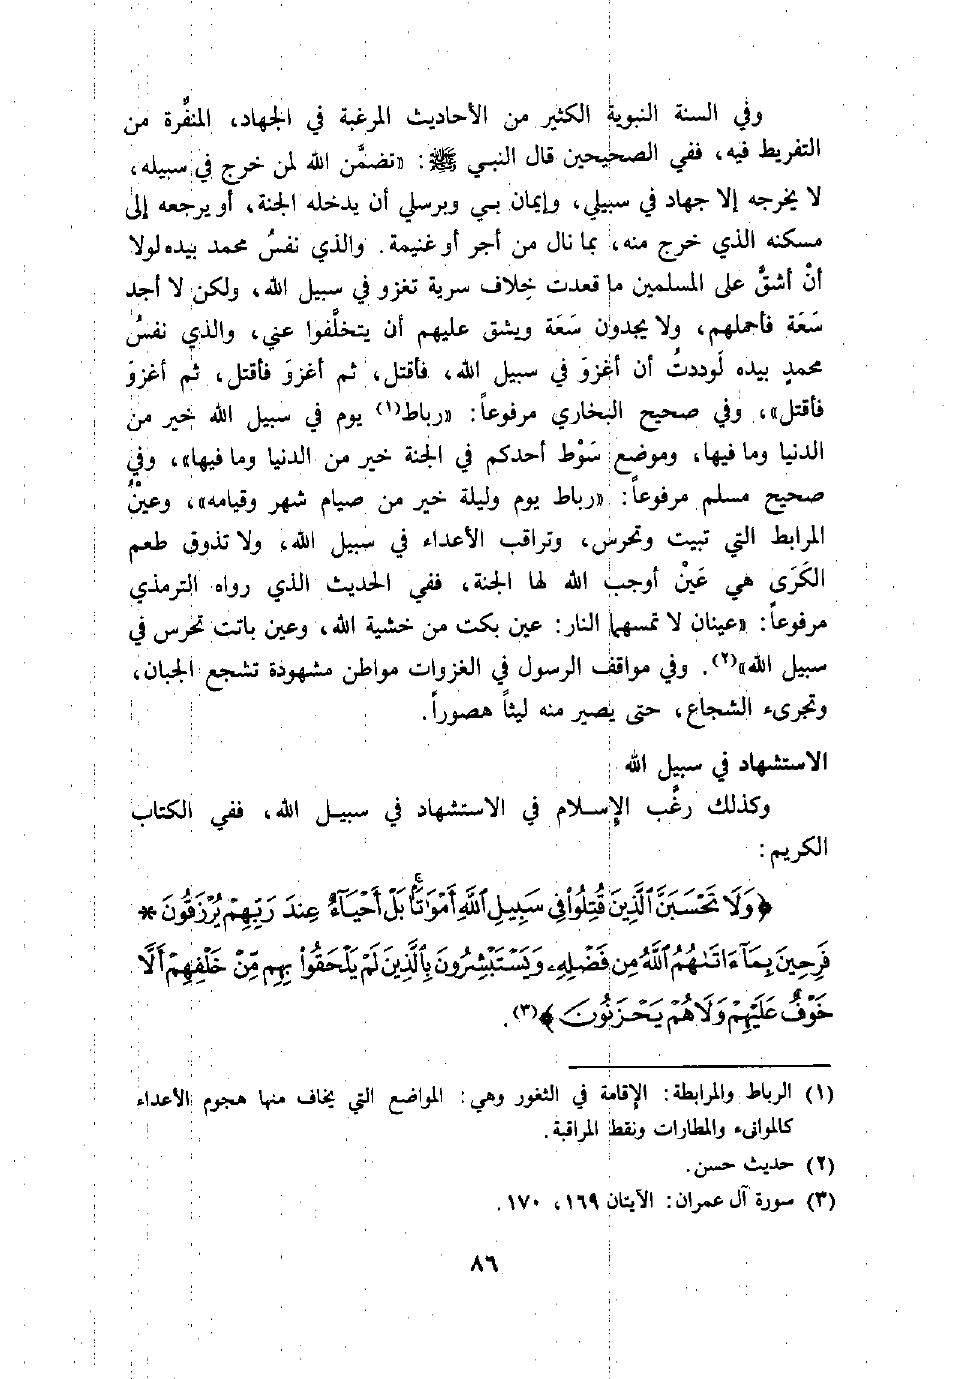 وفي السنة النبوية الكثير من الأحاديث المرغبة في الجهاد، المنفِّرة من
التفريط فيه، ففي الصحيحين قال النبي ﷺ: «تضمَّن الله لمن خرج في سبيله،
لا يخرجه إلا جهاد في سبيلي، وإيمان بي وبرسلي أن يدخله الجنة، أو يرجعه إلى
مسكنه الذي خرج منه، بما نال من أجر أو غنيمة. والذي نفسُ محمد بيده لولا
أنْ أشقَّ على المسلمين ما قعدت خِلاف سرية تغزو في سبيل الله، ولكن لا أجد
سَعَة فأحملهم، ولا يجدون سَعَة ويشق عليهم أن يتخلَّفوا عني، والذي نفسُ
محمدٍ بيده لَوددتُ أن أغزوَ في سبيل الله، فأقتل، ثم أغزوَ فأقتل، ثم أغزوَ
فأقتل»، وفي صحيح البخاري مرفوعاً: «رباط(١) يوم في سبيل الله خير من
الدنيا وما فيها، وموضع سَوْط أحدكم في الجنة خير من الدنيا وما فيها»، وفي
صحيح مسلم مرفوعاً: «رباط يوم وليلة خير من صيام شهر وقيامه»، وعينُ
المرابط التي تبيت وتحرس، وتراقب الأعداء في سبيل الله، ولا تذوق طعم
الكَرَى هي عَيْن أوجب الله لها الجنة، ففي الحديث الذي رواه الترمذي
مرفوعاً: «عينان لا تمسهما النار: عين بكت من خشية الله، وعين باتت تحرس في
سبيل الله»(٢). وفي مواقف الرسول في الغزوات مواطن مشهودة تشجع الجبان،
وتجرىء الشجاع، حتى يصير منه ليثاً هصوراً.
الاستشهاد في سبيل الله
وكذلك رغَّب الإسلام في الاستشهاد في سبيل الله، ففي الكتاب
الكريم:
﴿وَلَا تَحْسَبَنَّ ٱلَّذِينَ قُتِلُوا۟ فِى سَبِيلِ ٱللَّهِ أَمْوَٰتَۢا ۚ بَلْ أَحْيَآءٌ عِندَ رَبِّهِمْ يُرْزَقُونَ *
فَرِحِينَ بِمَآ ءَاتَىٰهُمُ ٱللَّهُ مِن فَضْلِهِۦ وَيَسْتَبْشِرُونَ بِٱلَّذِينَ لَمْ يَلْحَقُوا۟ بِهِم مِّنْ خَلْفِهِمْ أَلَّا
خَوْفٌ عَلَيْهِمْ وَلَا هُمْ يَحْزَنُونَ﴾(٣).
(١) الرباط والمرابطة: الإقامة في الثغور وهي: المواضع التي يخاف منها هجوم الأعداء
كالموانىء والمطارات ونقط المراقبة.
(٢) حديث حسن.
(٣) سورة آل عمران: الآيتان ١٦٩، ١٧٠.
٨٦